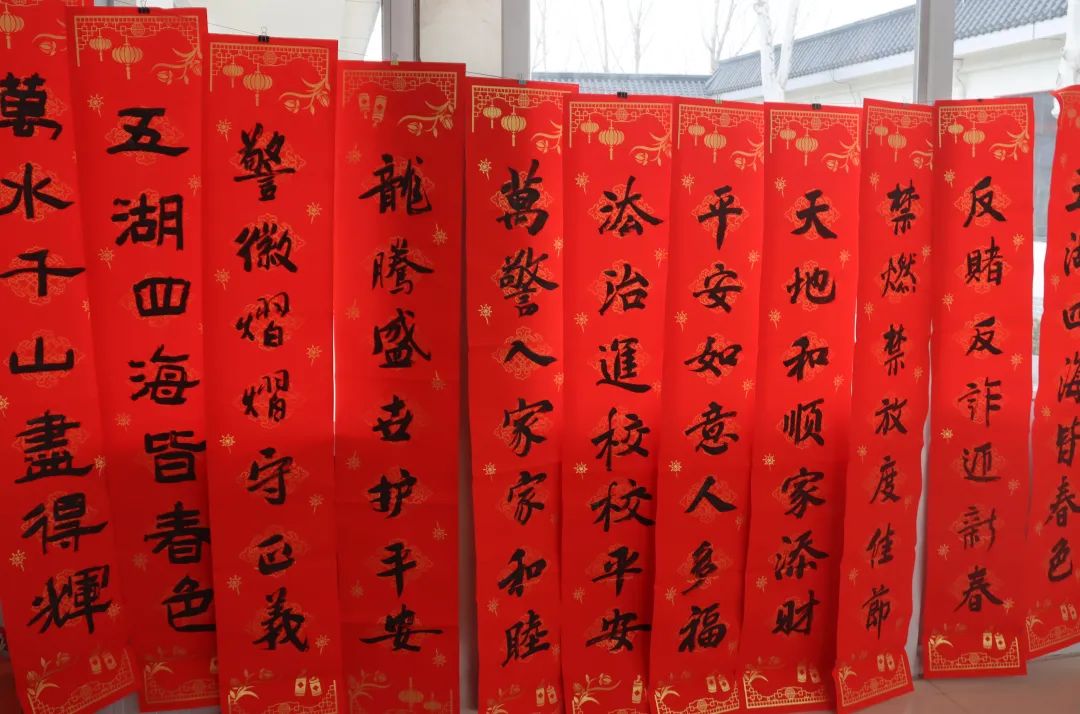 五湖四海皆春色
反赌反詐迎新春
禁燃禁放度佳節
天地和顺家添财
平安如意人多福
法治進校校平安
萬警入家家和睦
龍騰盛世护平安
警徽熠熠守正義
五湖四海皆春色
萬水千山盡得輝